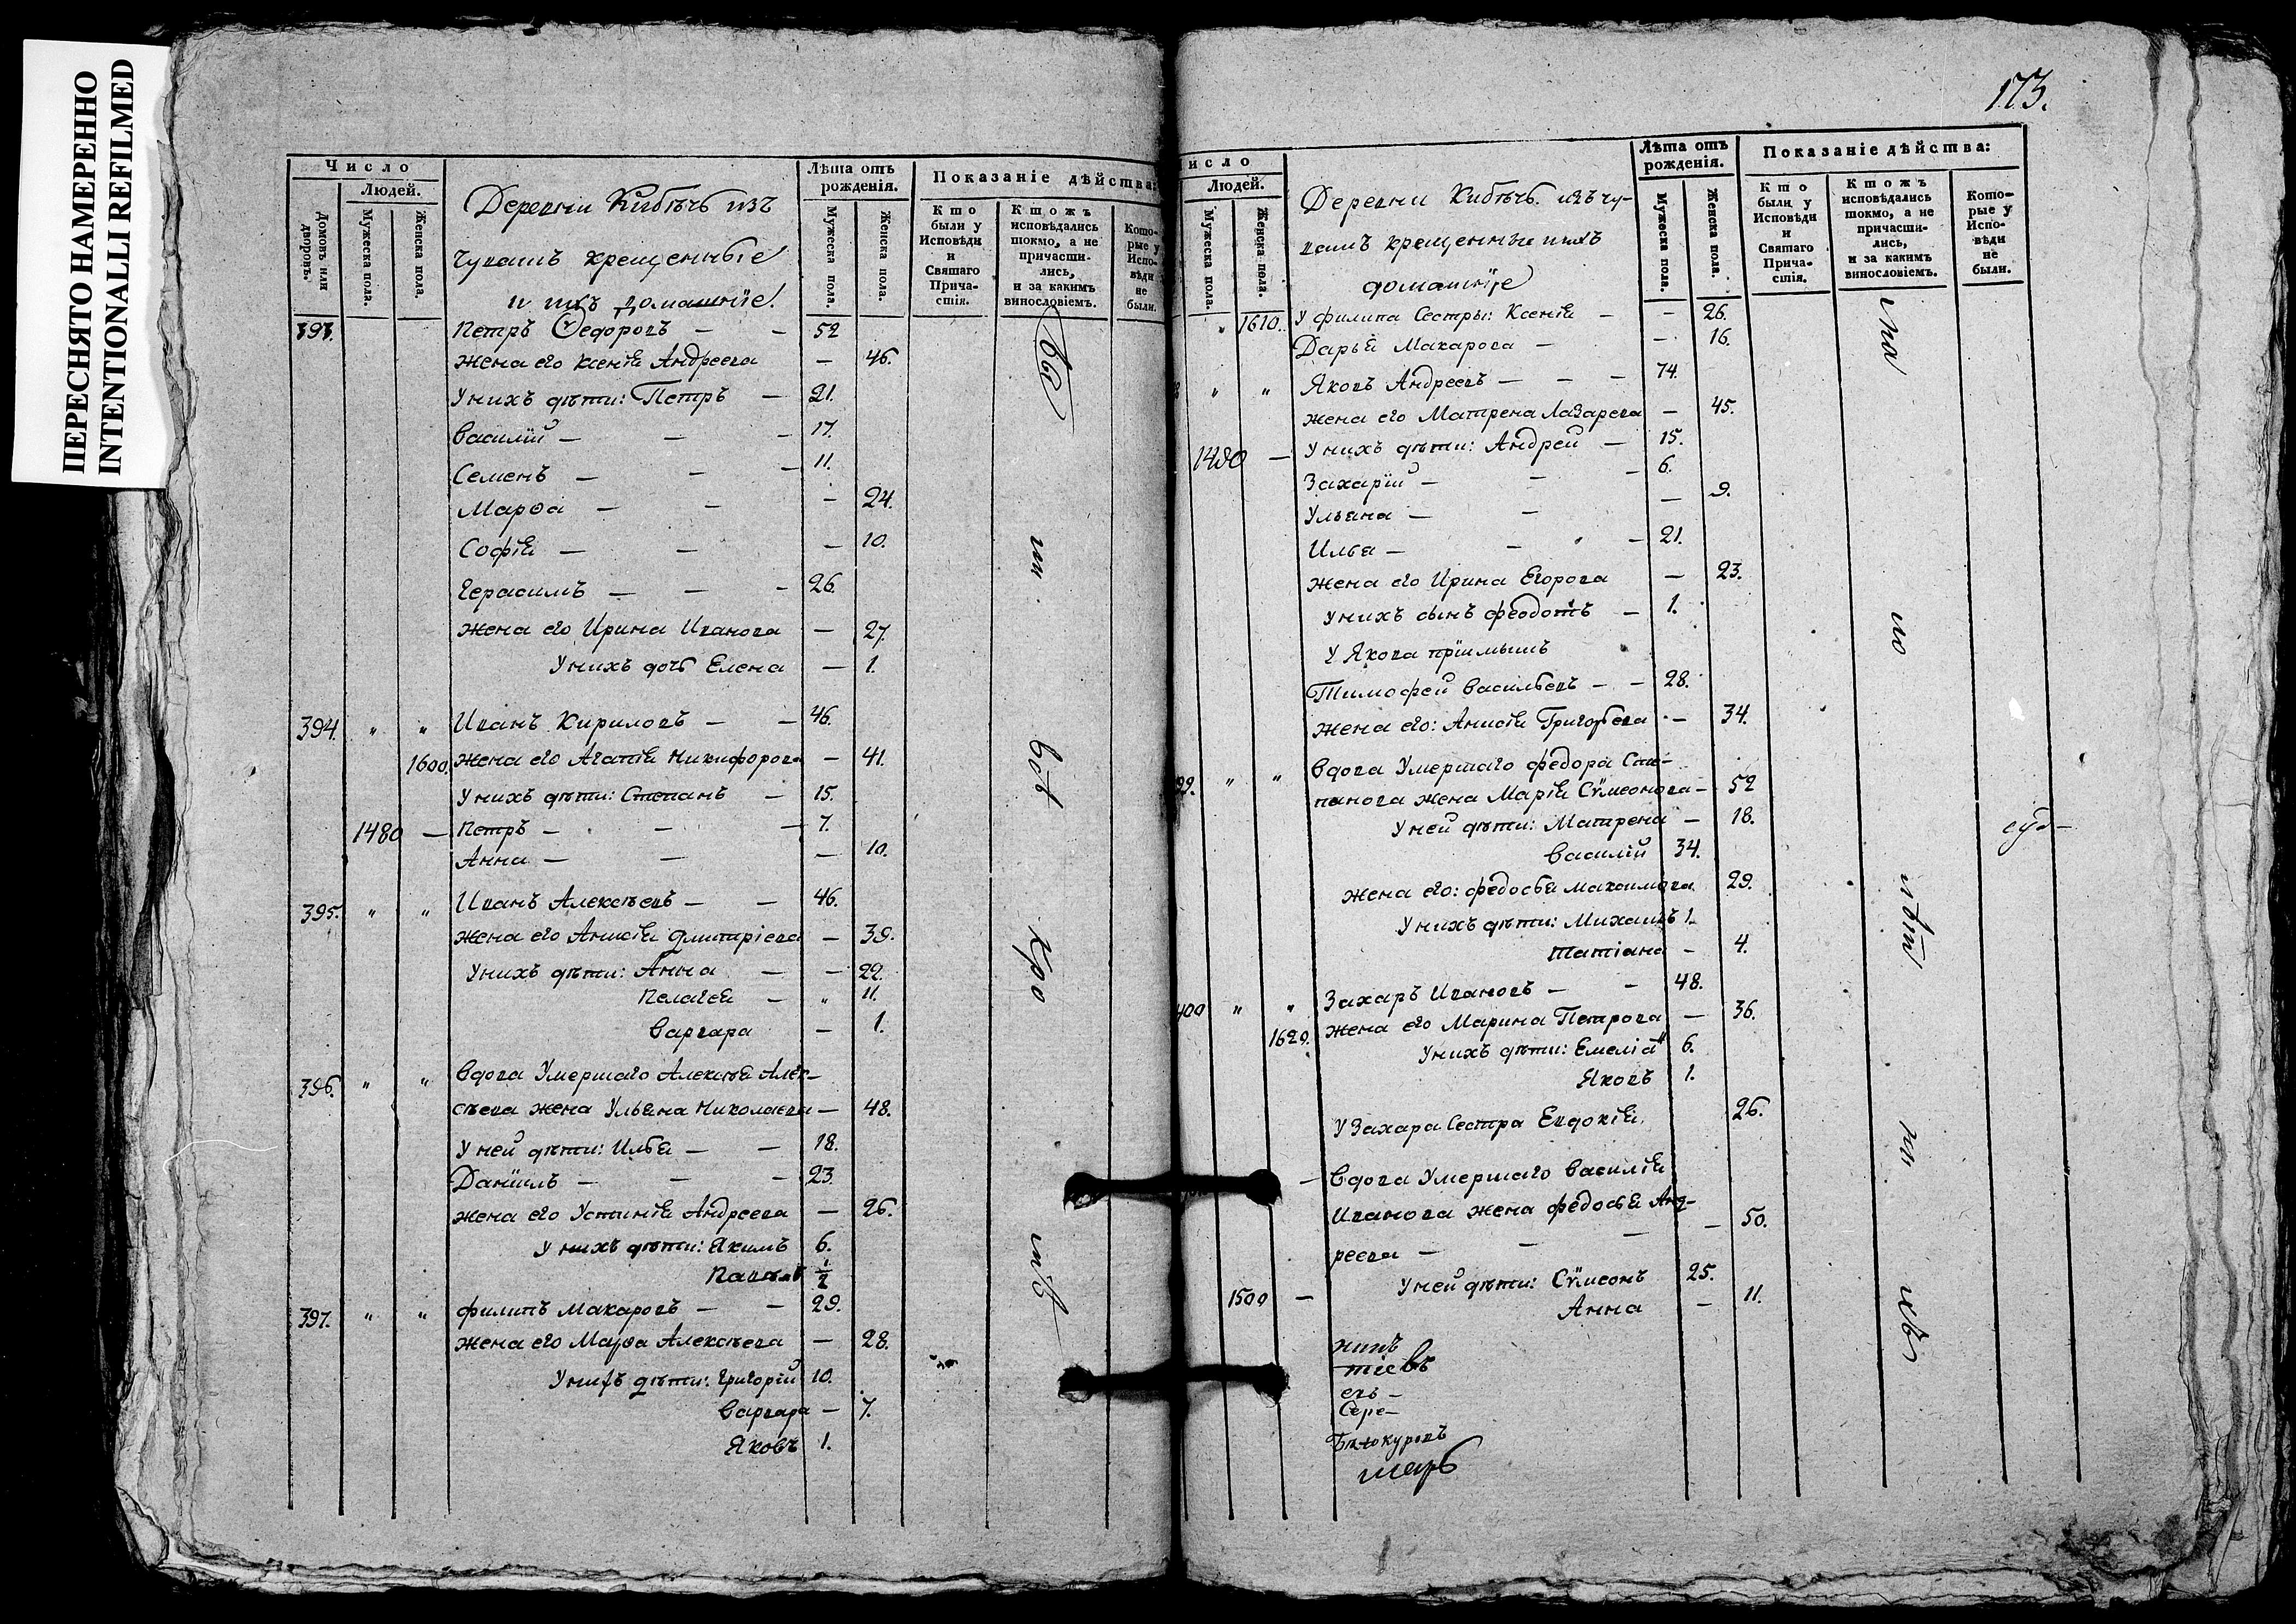 ПЕРЕСНЯТО НАМЕРЕННО
INTENTIONALLI REFILMED
Число
Людей.
Домовъ или дворовъ.
Мужеска пола.
Женска пола.
Деревни Кибѣчь изъ
чувашъ крещенныіе
и ихъ домашніе.
Лѣта отъ рожденія.
Мужеска пола.
Женска пола.
Показаніе дѣйства:
Кто были у Исповѣди и Святаго Причастія.
Ктожъ исповѣдались токмо, а не причастились, и за какимъ винословіемъ.
Которые у Исповѣди не были.
393. Петръ Ѳедоровъ — — 52
жена его Ксенія Андреева — 46.
У нихъ дѣти: Петръ — 21.
Василій — — — 17.
Семенъ — — — 11.
Марѳа — — — 24.
Софія — — — 10.
Герасимъ — — — 26.
жена его Ирина Иванова — 27.
У нихъ дочь Елена — 1.
394. " " Иванъ Кириловъ — — 46.
1600. жена его Агапія Никифорова — 41.
У нихъ дѣти: Степанъ — 15.
1480 — Петръ — — — 7.
Анна — — — 10.
395. " " Иванъ Алексѣевъ — — 46.
жена его Анисія Дмитріева — 39.
У нихъ дѣти: Анна — — 22.
Пелагея — " 11.
Варвара — 1.
396. " " Вдова Умершаго Алексѣя Алек-
сѣева жена Ульяна Николаева — 48.
У ней дѣти: Илья — — 18.
Даніилъ — — — 23.
жена его Устинія Андреева — 26.
У нихъ дѣти: Якимъ 6.
Павелъ 1/2
397. " " Филипъ Макаровъ — — 29.
жена его Марѳа Алексѣева — 28.
У нихъ дѣти: Григорій 10.
Варвара — 7.
Яковъ 1.
вы
ш
воѣ
кро
173.
исло
Людей.
Мужеска пола.
Женска пола.
Деревни Кибѣчь. изъ чу-
вашъ крещенные ихъ
домашніе
Лѣта отъ рожденія.
Мужеска пола.
Женска пола.
Показаніе дѣйства:
Кто были у Исповѣди и Святаго Причастія.
Ктожъ исповѣдались токмо, а не причастились, и за какимъ винословіемъ.
Которые у Исповѣди не были.
" 1610. У Филипа Сестры: Ксенія — — 26.
Дарья Макарова — — 16.
" " Яковъ Андреевъ — — — 74.
жена его Матрена Лазарева — 45.
1490 — У нихъ дѣти: Андрей — 15.
Захарій — — — 6.
Ульяна — — — 9.
Илья — — — 21.
жена его Ирина Егорова — 23.
У нихъ сынъ Феодотъ — 1.
У Якова пріимышъ
Тимофей Васильевъ — — 28.
жена его: Анисія Григорьева — 34.
99. " " Вдова Умершаго Федора Сте-
панова жена Марія Сѵмеонова — 52
У ней дѣти: Матрена — 18.
Василій 34.
жена его: Федосья Максимова 29.
У нихъ дѣти: Михаилъ 1.
Татіана — 4.
400 " " Захаръ Ивановъ — — 48.
1620. жена его Марина Петрова — 36.
У нихъ дѣти: Емеліа" 6.
Яковъ 1.
У Захара Сестра Евдокія. 26.
— Вдова Умершаго Василія
Иванова жена Федосья Анд-
реева — — — — 50.
У ней дѣти: Сѵмеонъ 25.
1500 — Анна — 11.
нинъ
тіевъ
евъ —
Сере—
Бѣлокуровъ
шарь
по
суд-